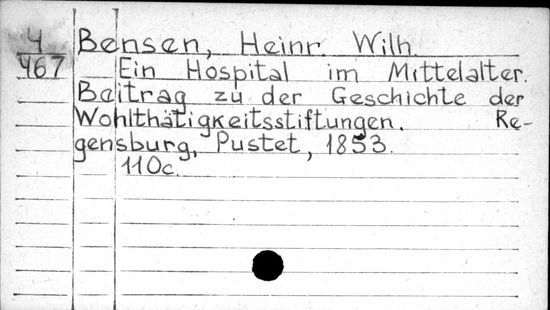 4 Bensen, Heinr. Wilh.
467 Ein Hospital im Mittelalter.
Beitrag zu der Geschichte der
Wohlthätigkeitsstiftungen. Re-
gensburg, Pustet, 1853.
110c.